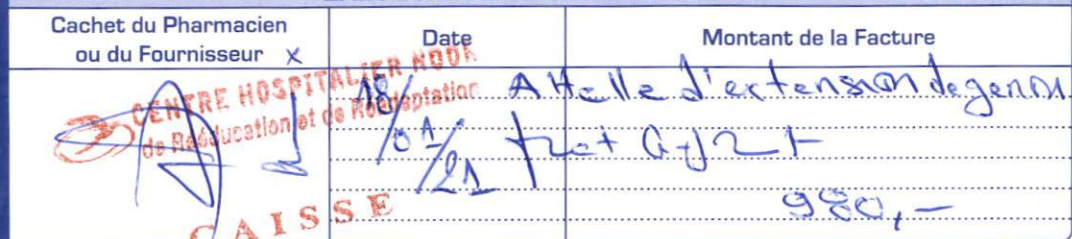 Cachet du Pharmacien
ou du Fournisseur X
Date
Montant de la Facture
CENTRE HOSPITALIER NOOR
de Rééducation et de Réadaptation
CAISSE
18/
01/
21
Attelle d'extension de genou
980,-